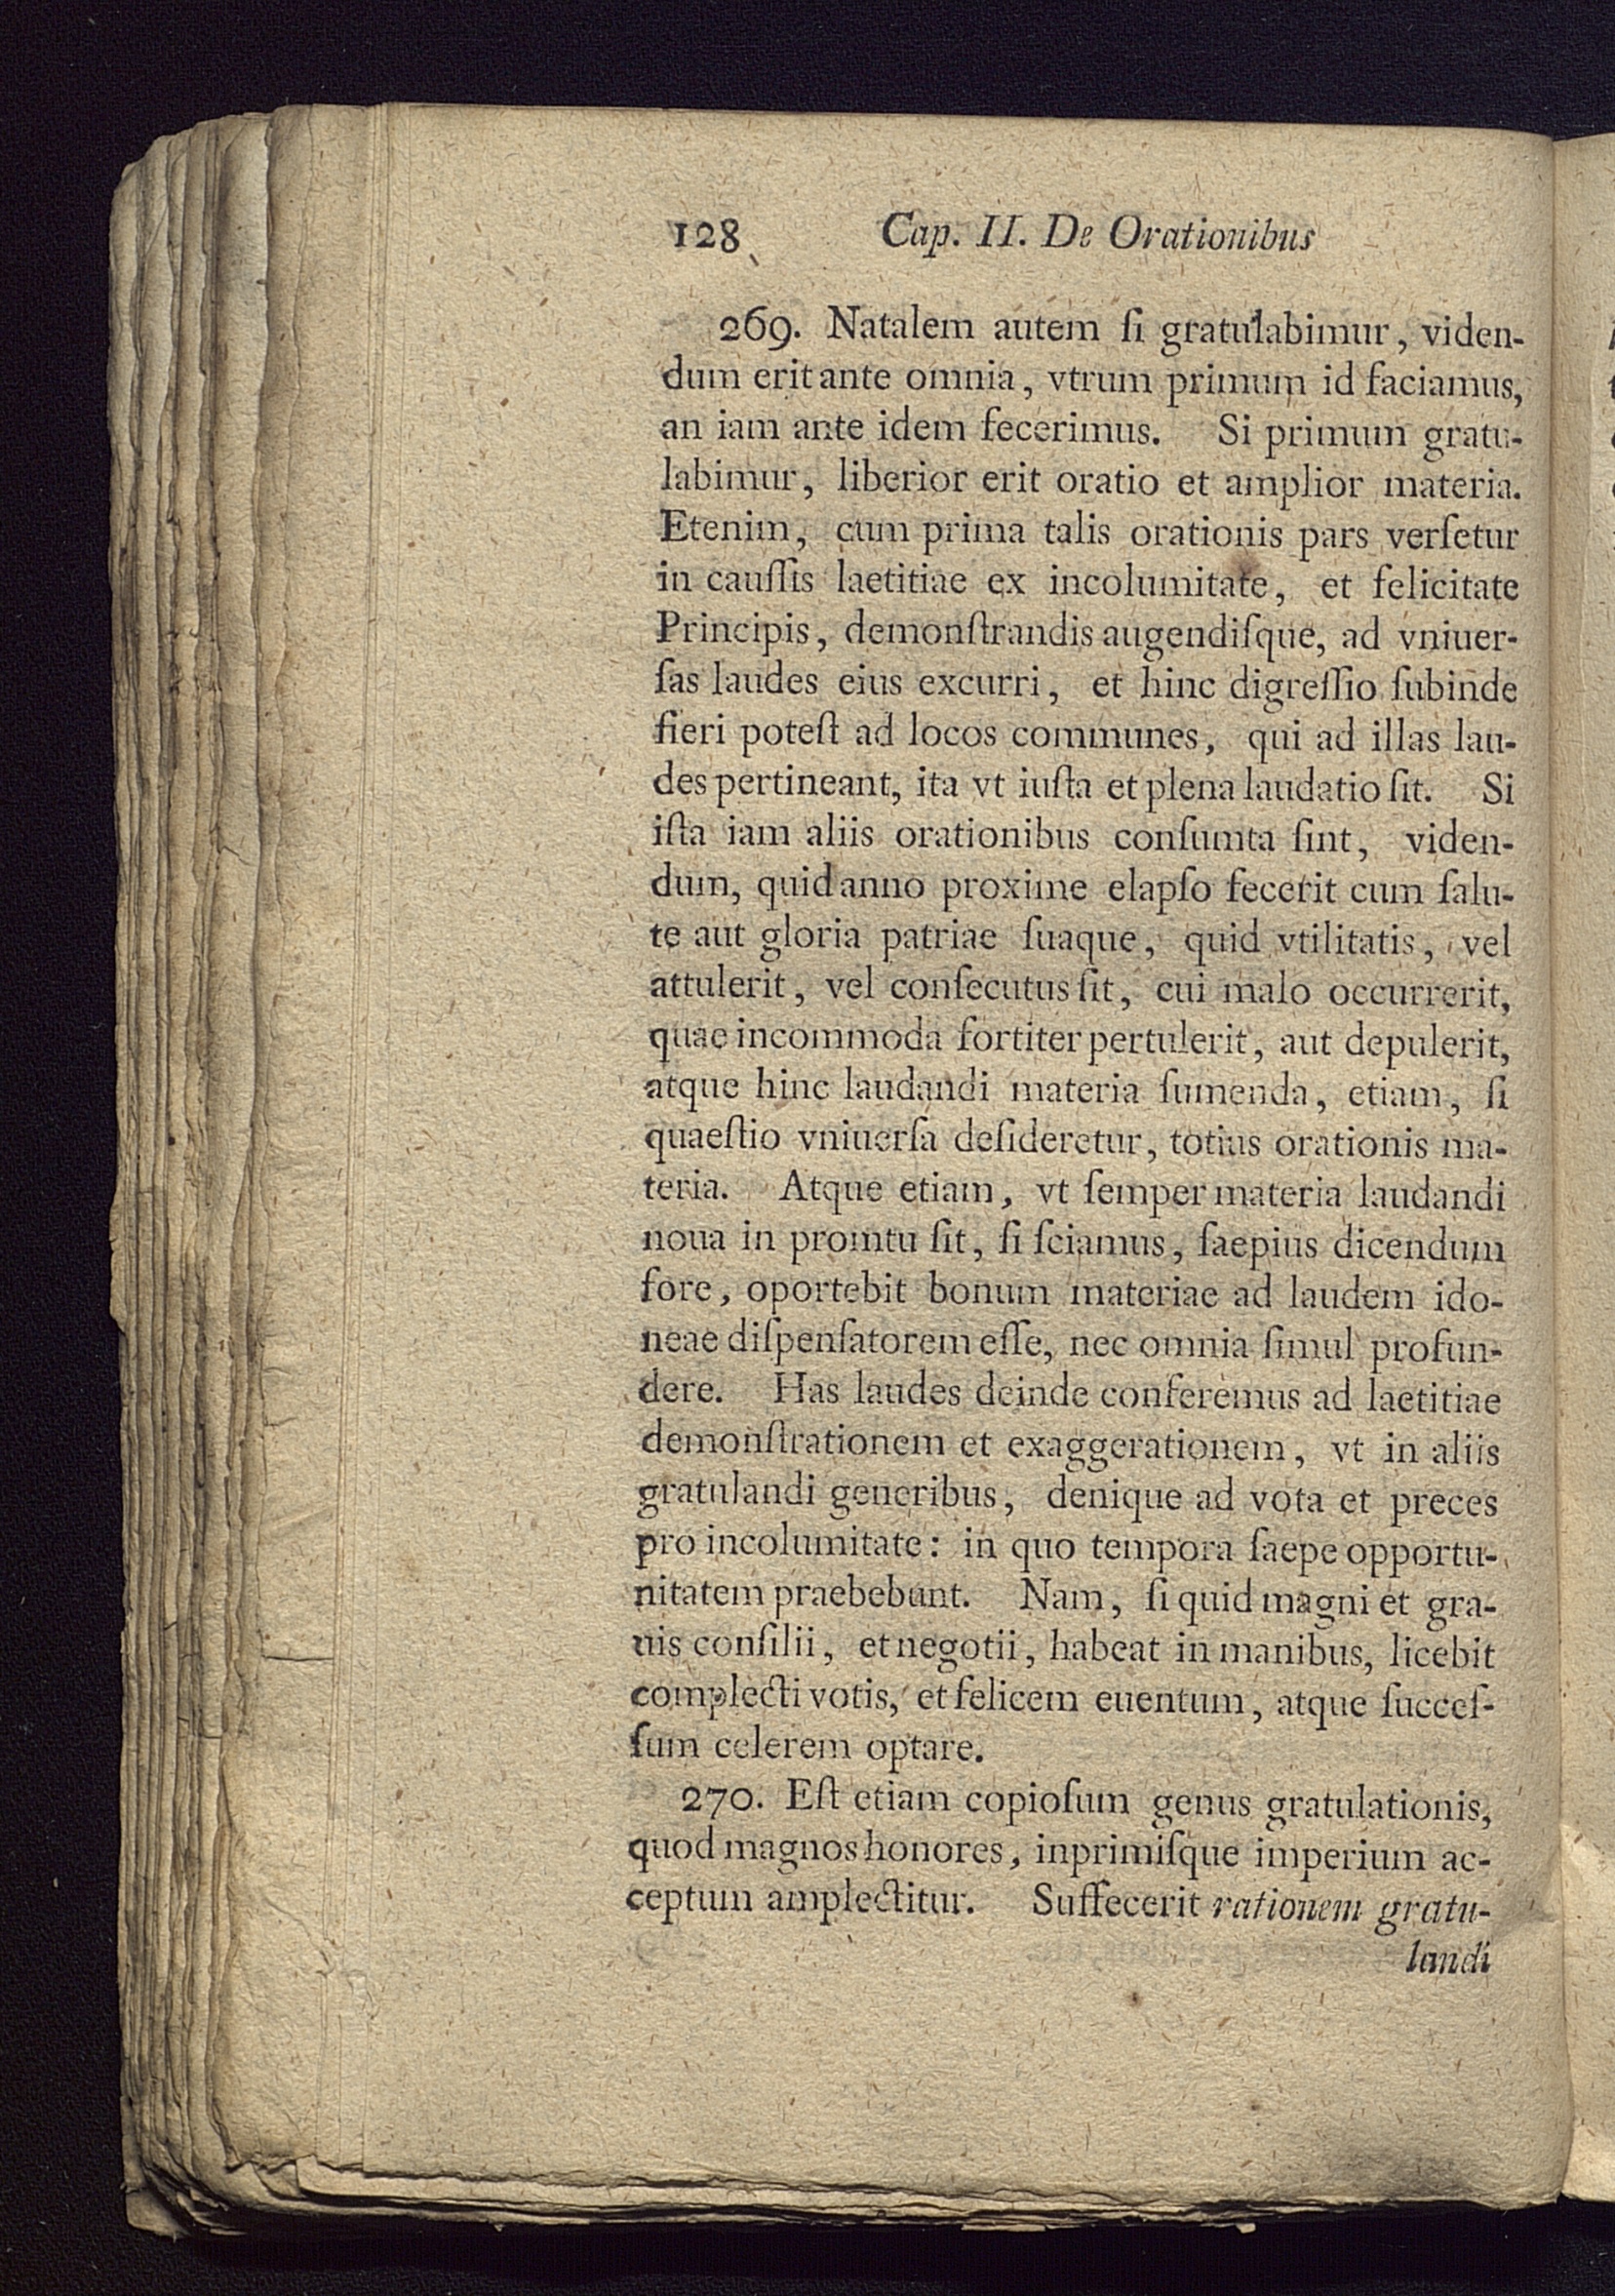 128 Cap. II. De Orationibus
269. Natalem autem ſi gratulabimur, viden-
dum erit ante omnia, vtrum primum id faciamus,
an iam ante idem fecerimus. Si primum gratu-
labimur, liberior erit oratio et amplior materia.
Etenim, cum prima talis orationis pars verſetur
in cauſſis laetitiae ex incolumitate, et felicitate
Principis, demonſtrandis augendiſque, ad vniuer-
ſas laudes eius excurri, et hinc digreſſio ſubinde
fieri poteſt ad locos communes, qui ad illas lau-
des pertineant, ita vt iuſta et plena laudatio ſit. Si
iſta iam aliis orationibus conſumta ſint, viden-
dum, quid anno proxime elapſo fecerit cum ſalu-
te aut gloria patriae ſuaque, quid vtilitatis, vel
attulerit, vel conſecutus ſit, cui malo occurrerit,
quae incommoda fortiter pertulerit, aut depulerit,
atque hinc laudandi materia ſumenda, etiam, ſi
quaeſtio vniuerſa deſideretur, totius orationis ma-
teria. Atque etiam, vt ſemper materia laudandi
noua in promtu ſit, ſi ſciamus, ſaepius dicendum
fore, oportebit bonum materiae ad laudem ido-
neae diſpenſatorem eſſe, nec omnia ſimul profun-
dere. Has laudes deinde conferemus ad laetitiae
demonſtrationem et exaggerationem, vt in aliis
gratulandi generibus, denique ad vota et preces
pro incolumitate: in quo tempora ſaepe opportu-
nitatem praebebunt. Nam, ſi quid magni et gra-
uis conſilii, et negotii, habeat in manibus, licebit
complecti votis, et felicem euentum, atque ſucceſ-
ſum celerem optare.
270. Eſt etiam copioſum genus gratulationis,
quod magnos honores, inprimiſque imperium ac-
ceptum amplectitur. Suffecerit rationem gratu-
landi